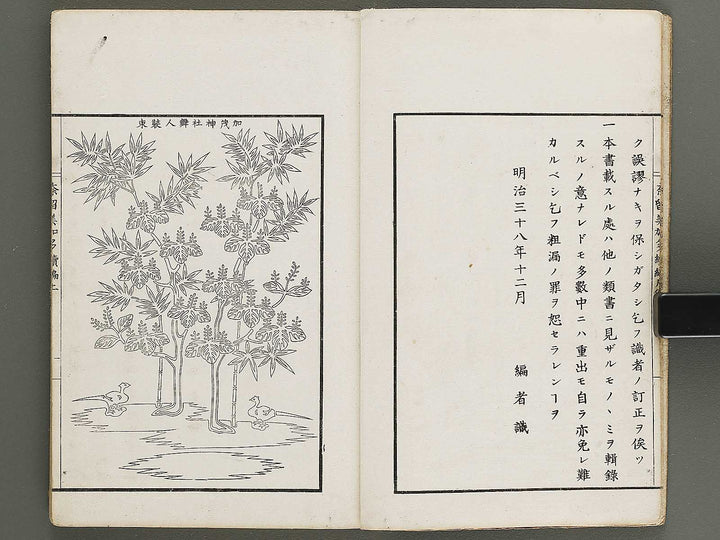 ク誤謬ナキヲ保シガタシ乞フ識者ノ訂正ヲ俟ツ
一本書載スル處ハ他ノ類書ニ見ザルモノヽミヲ輯錄
スルノ意ナレドモ多數中ニハ重出モ自ラ亦免レ難
カルベシ乞フ粗漏ノ罪ヲ恕セラレンヿヲ
明治三十八年十二月 編者識
加茂神社舞人裝束